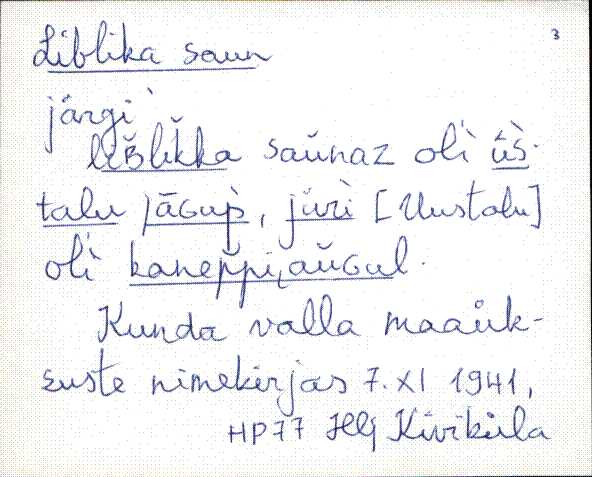 3
Liblika saun
järgi
liʙ̆lik̆ka saŭnaz oĺì ūs̀-
talu jāɢup̀, jüŕì [Uustalu]
oĺì kanep̆pi, aŭɢul.
Kunda valla maaük-
suste nimekirjas 7. XI 1941,
HP77 Hlj Kiviküla